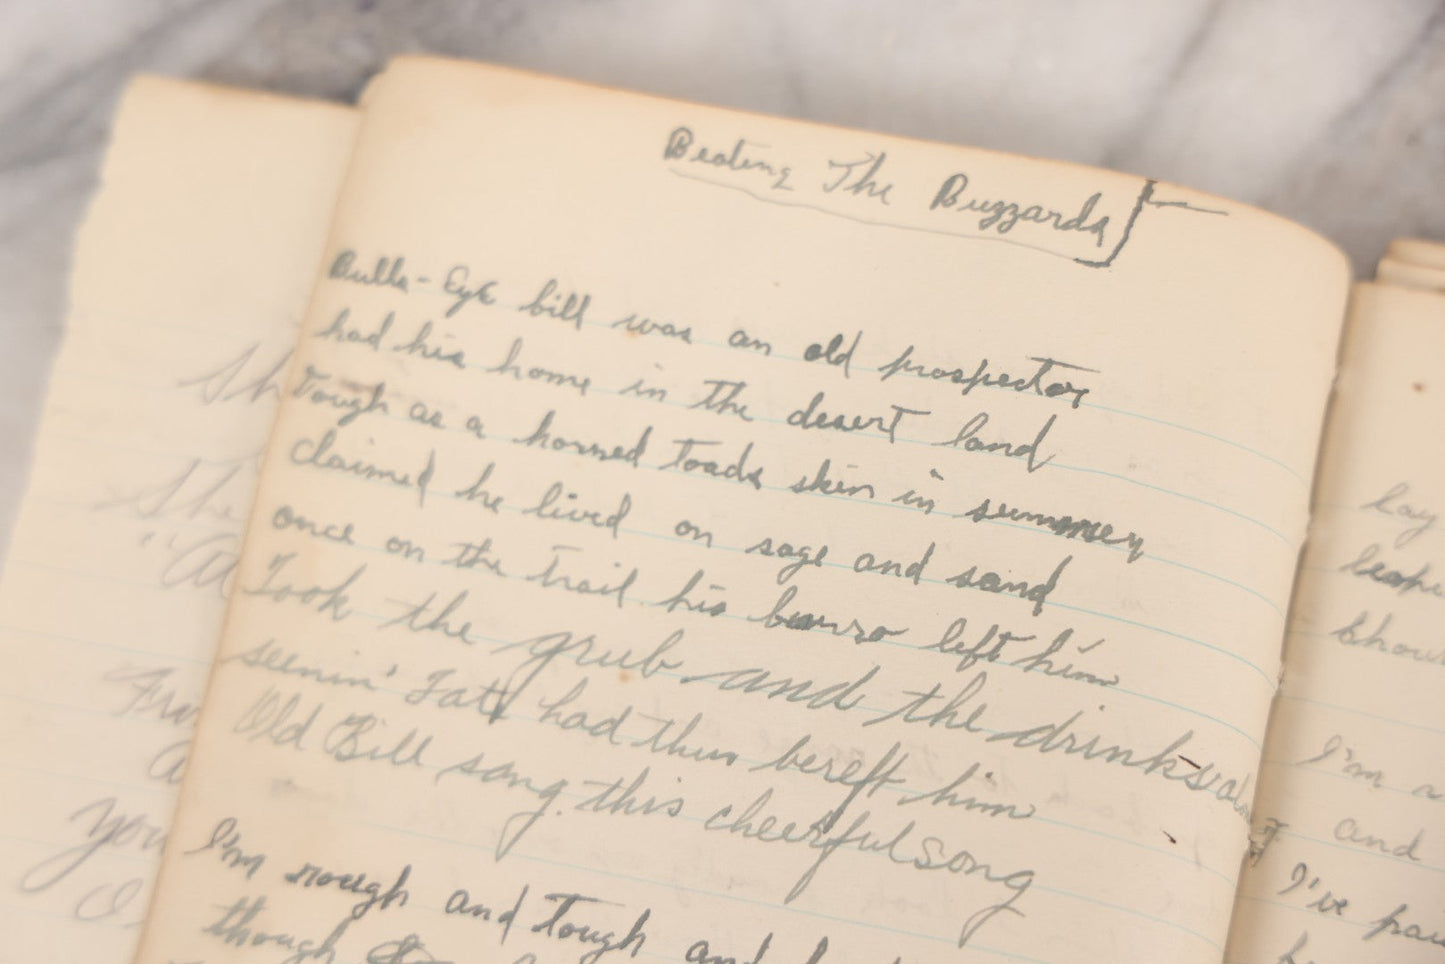 Beating The Buzzards
Bulls-Eye bill was an old prospector
had his home in the desert land
Tough as a horned toads skin in summer
claimed he lived on sage and sand
once on the trail his burro left him
Took the grub and the drinks
seenin' Fate had thus bereft him
Old Bill sang this cheerful song
I'm rough and tough and
though
Sh
She
you
lay
I'm
and
I've